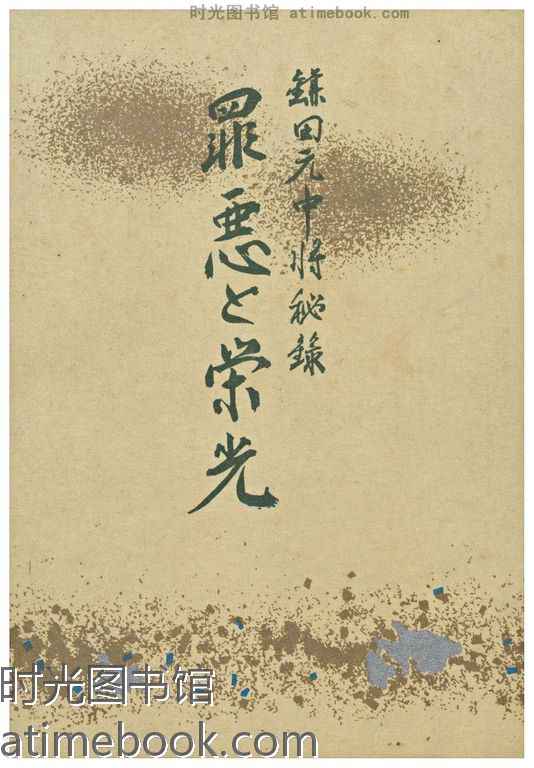 时光图书馆 atimebook.com
鎌田元中将秘録
罪悪と栄光
时光图书馆
atimebook.com